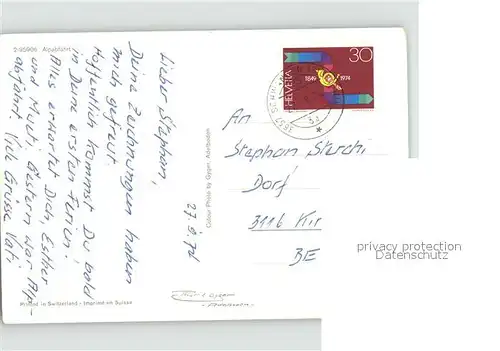 2-95996 Alpabfahrt
Lieber Stephan,
Deine Zeichnungen haben
mich gefreut.
Hoffentlich kommst Du bald
in Deine ersten Ferien.
Alles erwartet Dich, Esther
und Muck. Gestern war Alp-
abfahrt. Viele Grüsse Vati
27.9.74
Colour Photo by Gyger, Adelboden
Printed in Switzerland - Imprimé en Suisse
HELVETIA
1849
1974
30
An
Stephan Sturchi
Dorf
3116 Kir
BE
privacy protection
Datenschutz